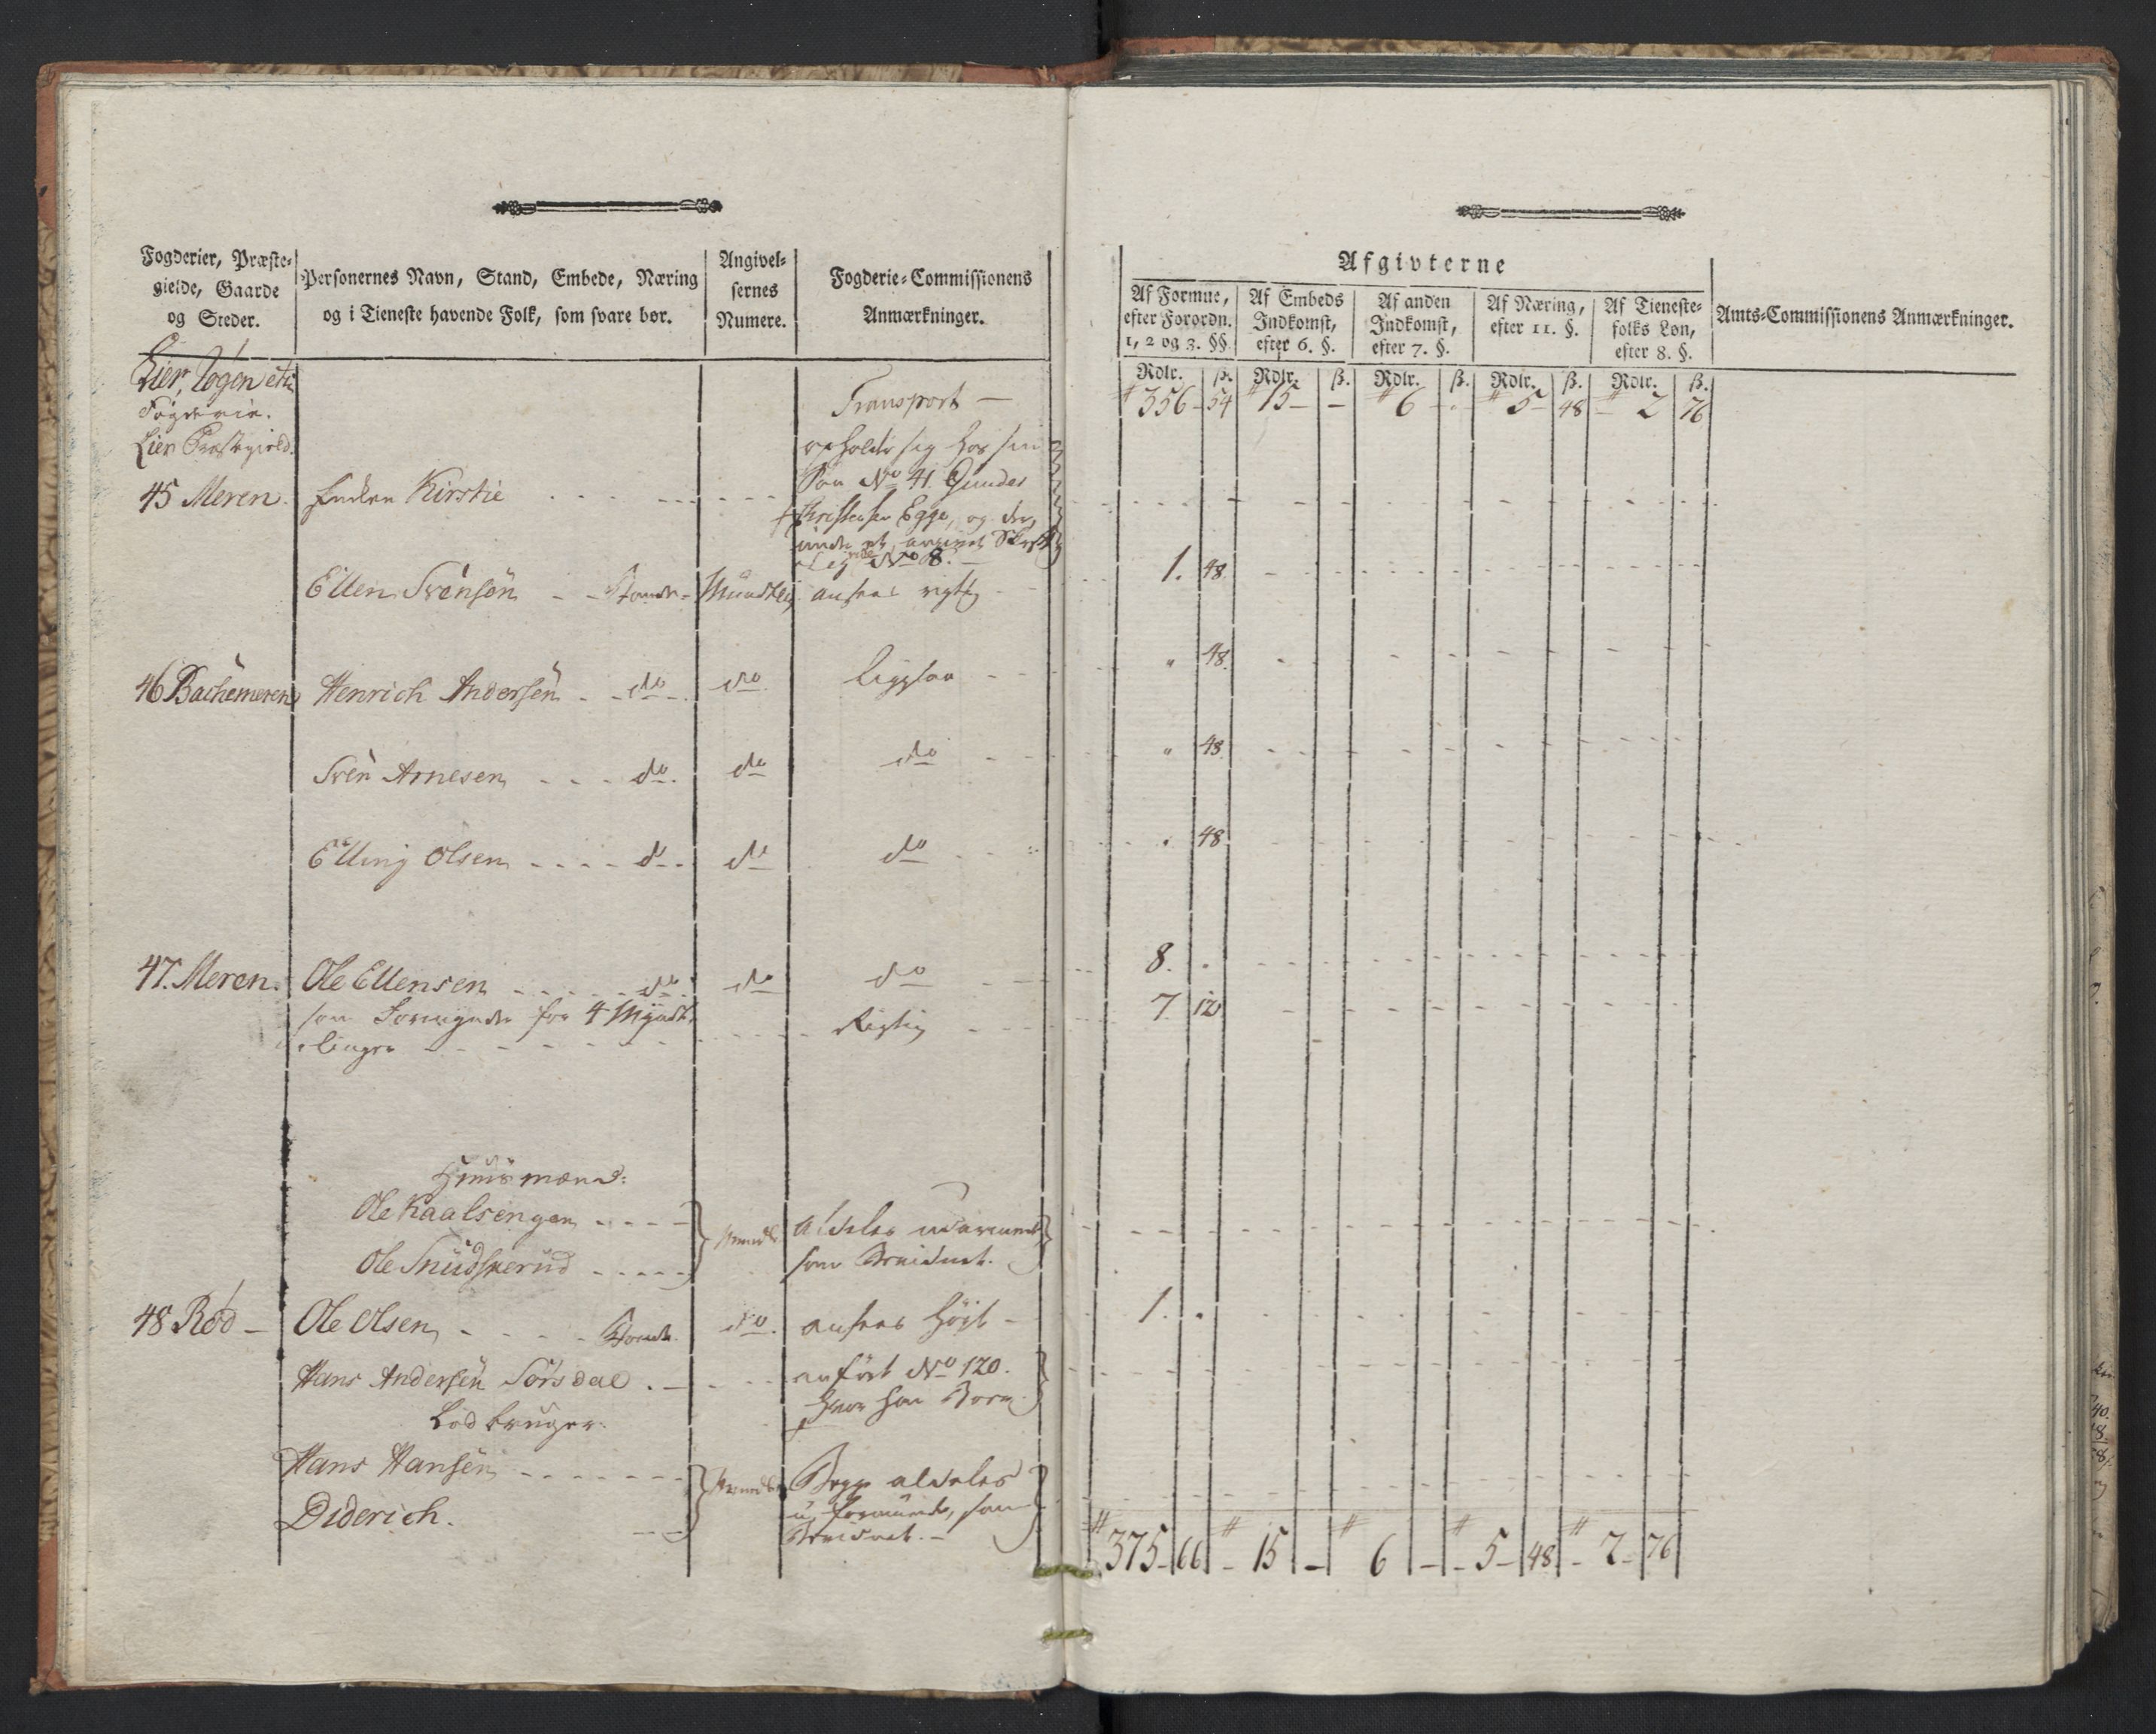 Fogderier, Præste-
gielde, Gaarde
og Steder.
Personernes Navn, Stand, Embede, Næring
og i Tieneste havende Folk, som svare bør.
Angivel-
sernes
Numere.
Fogderie-Commissionens
Anmærkninger.
Lier, Røgen etc
Fogderie.
Lier Præstegield.
Transport —
opholder sig hos sin
Søn No 41. Gunder
Christensen Egge, og der
45 Meren. Enken Kirstie
No 8.
Ellen Svensön Bonde Mundtlig ansees rigtig
46 Bachemeren Henrich Andersen do do Ligesaa
Sven Arnesen do do do
Elling Olsen do do do
47. Meren. Ole Ellensen do do do
som Formynder for 4 Mynd-
linger Rigtig
Huusmænd:
Ole Kaalsengen
Ole Snudskerud
Mundtl. aldeles uformuende
som Bemidnet.
48 Rød — Ole Olsen Bonde do ansees Høyt
Hans Andersen Sørsdal anført No 120.
hvor han Boer
Lodbruger
Hans Hansen
Diderich.
Mundtl Begge aldeles
uformuende, som
Afgivterne
Af Formue,
efter Forordn.
1, 2 og 3. §§.
Af Embeds
Indkomst,
efter 6. §.
Af anden
Indkomst,
efter 7. §.
Af Næring,
efter 11. §.
Af Tieneste-
folks Løn,
efter 8. §.
Amts-Commissionens Anmærkninger.
Rdlr. ß. Rdlr. ß. Rdlr. ß. Rdlr. ß. Rdlr. ß.
356 54 15 - 6 - 5 48 2 76
1. 48
" 48
" 48
" 48
8. -
7. 12
1. -
375 66 15 - 6 - 5 48 2 76